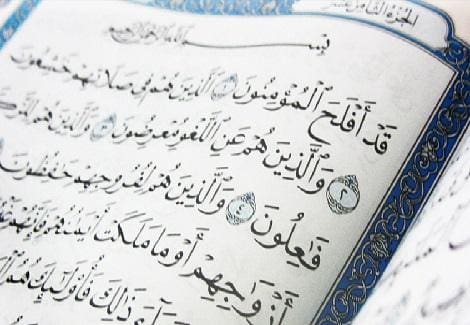 الجزء الثامن عشر
بِسْمِ اللَّهِ الرَّحْمَٰنِ الرَّحِيمِ
قَدْ أَفْلَحَ الْمُؤْمِنُونَ ١ الَّذِينَ هُمْ فِي صَلَاتِهِمْ خَاشِعُونَ
٢ وَالَّذِينَ هُمْ عَنِ اللَّغْوِ مُعْرِضُونَ ٣ وَالَّذِينَ هُمْ
فَاعِلُونَ ٤ وَالَّذِينَ هُمْ لِفُرُوجِهِمْ حَافِظُونَ
أَزْوَاجِهِمْ أَوْ مَا مَلَكَتْ أَيْمَانُهُمْ فَإِنَّهُمْ
ذَٰلِكَ فَأُولَٰئِكَ هُمُ